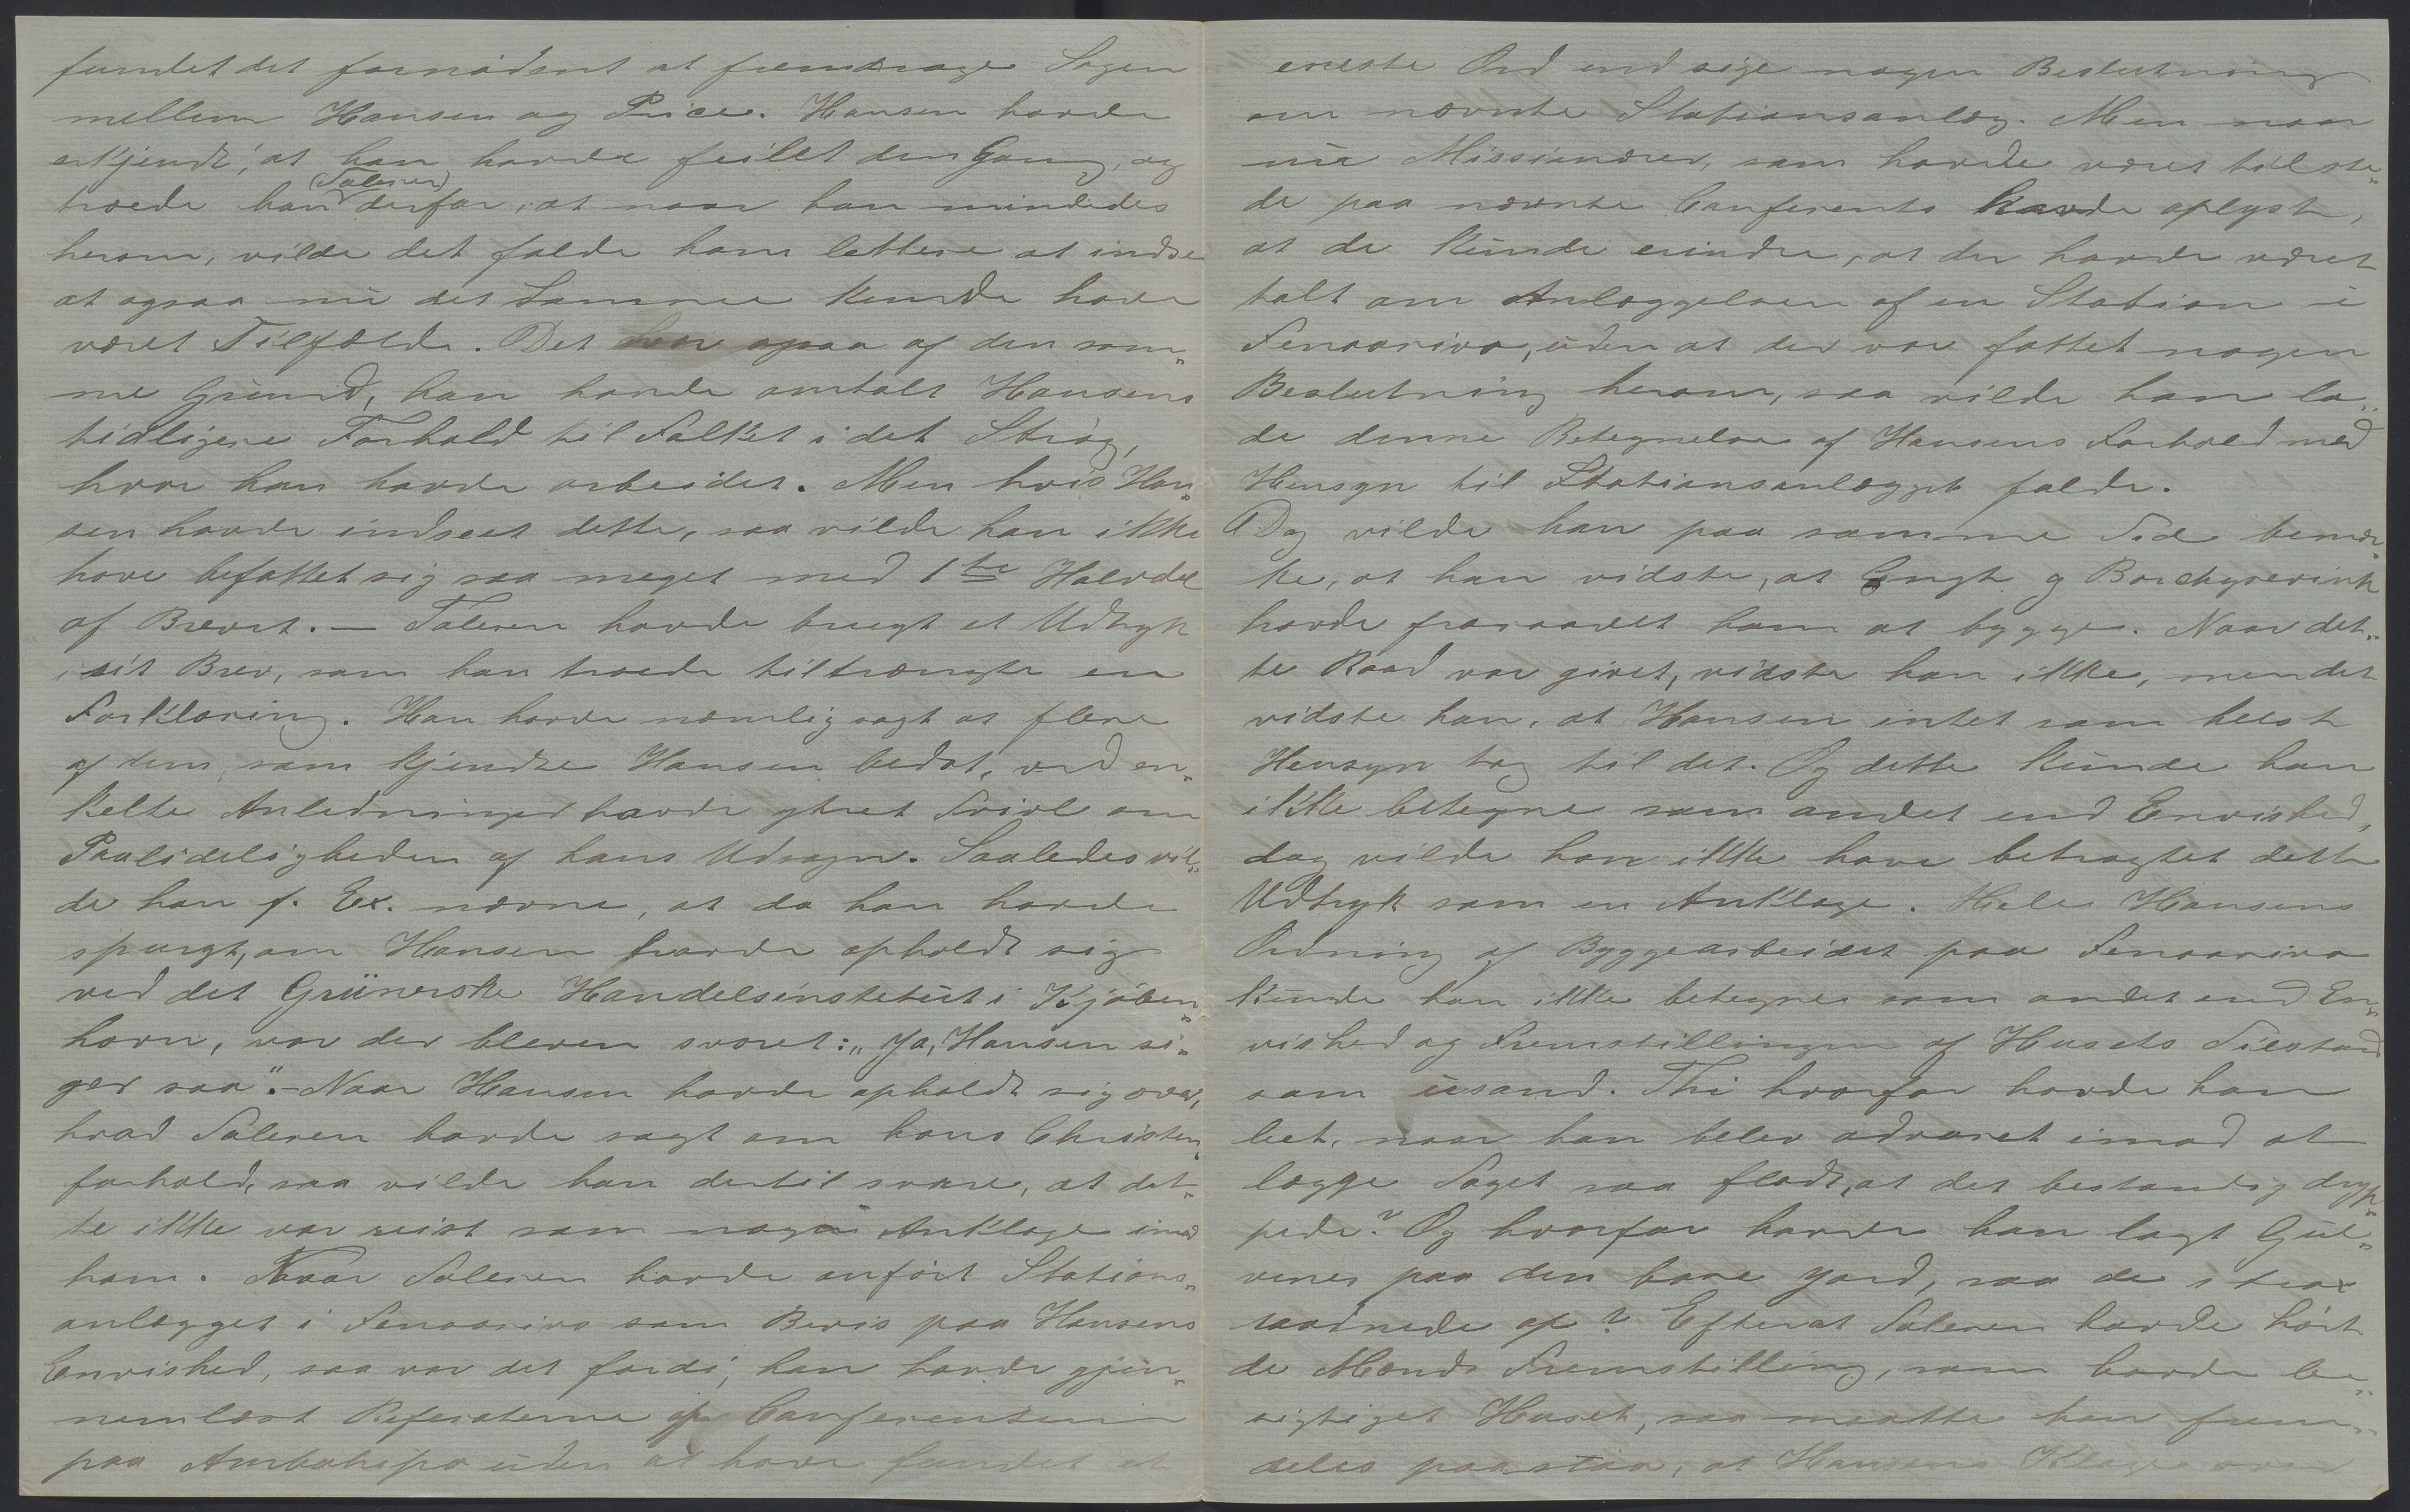 fundet det fornødent at fremdrage Sagen
mellem Hansen og Price. Hansen havde
erkjendt, at han havde feilet den Gang, og
troede han (Taleren) derfor, at naar han mindedes
herom, vilde det falde ham lettere at indse
at ogsaa nu det Samme kunde have
været Tilfælde. Det var ogsaa af den sam„
me Grund, han havde omtalt Hansens
tidligere Forhold til Folket i det Strøg,
hvor han havde arbeidet. Men hvis Han„
sen havde indseet dette, saa vilde han ikke
have befattet sig saa meget med 1ste Halvdel
af Brevet. — Taleren havde brugt et Udtryk
i sit Brev, som han troede tiltrængte en
Forklaring. Han havde nemlig sagt at flere
af dem, som kjendte Hansen bedst, ved en„
kelte Anledninger havde ytret Tvivl om
Paalideligheden af hans Udsagn. Saaledes vil„
de han f. Ex. nævne, at da han havde
spurgt, om Hansen havde opholdt sig
ved det Grünerske Handelsinstetut i Kjøben„
havn, var der bleven svaret: „Ja, Hansen si„
ger saa“. – Naar Hansen havde opholdt sig over,
hvad Taleren havde sagt om hans Christen„
forhold, saa vilde han dertil svare, at det„
te ikke var reist som nogen Anklage imod
ham. Naar Taleren havde anført Stations„
anlægget i Fenoarivo som Bevis paa Hansens
Envished, saa var det fordi, han havde gjen„
nemlæst Referaterne af Conferentsen
paa Ambatovipo uden at have fundet et
eneste Ord end sige nogen Beslutning
om nævnte Stationsanlæg. Men naar
nu Missionærer, som havde været tilste„
de paa nævnte Conferents havde oplyst,
at de kunde erindre, at der havde været
talt om Anlæggelsen af en Station i
Fenoarivo, uden at der var fattet nogen
Beslutning herom, saa vilde han la„
de denne Betegnelse af Hansens Forhold med
Hensyn til Stationsanlægget falde.
Dog vilde han paa samme Tid bemær„
ke, at han vidste, at Engh og Borchgrevink
havde fraraadet ham at bygge. Naar det„
te Raad var givet, vidste han ikke, men det
vidste han, at Hansen intet som helst
Hensyn tog til det. Og dette kunde han
ikke betegne som andet end Envished,
dog vilde han ikke have betragtet dette
Udtryk som en Anklage. Hele Hansens
Ordning af Byggearbeidet paa Fenoarivo
kunde han ikke betegne som andet end En„
vished og Fremstillingen af Husets Tilstand
som usand. Thi hvorfor havde han
leet, naar han blev advaret imod at
lægge Taget saa fladt, at det bestandig dryp„
pede? Og hvorfor havde han lagt Gul„
vene paa den bare Jord, saa de strax
raadnede op? Efterat Taleren havde hørt
de Mænds Fremstilling, som havde be„
sigtiget Huset, saa maatte han frem„
deles paastaa, at Hansens Klage over